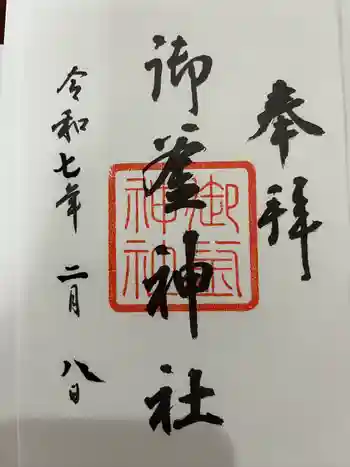 奉拝
御釜神社
御釜神社
令和七年 二月 八日